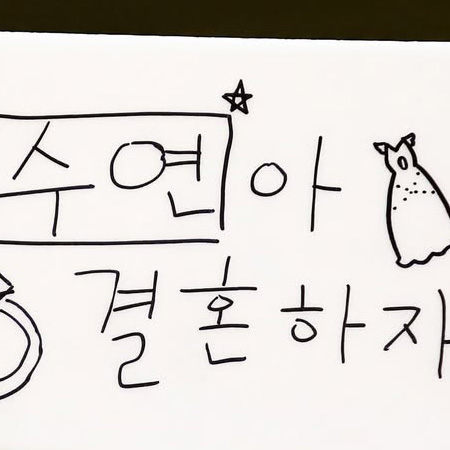 수연아
결혼하자